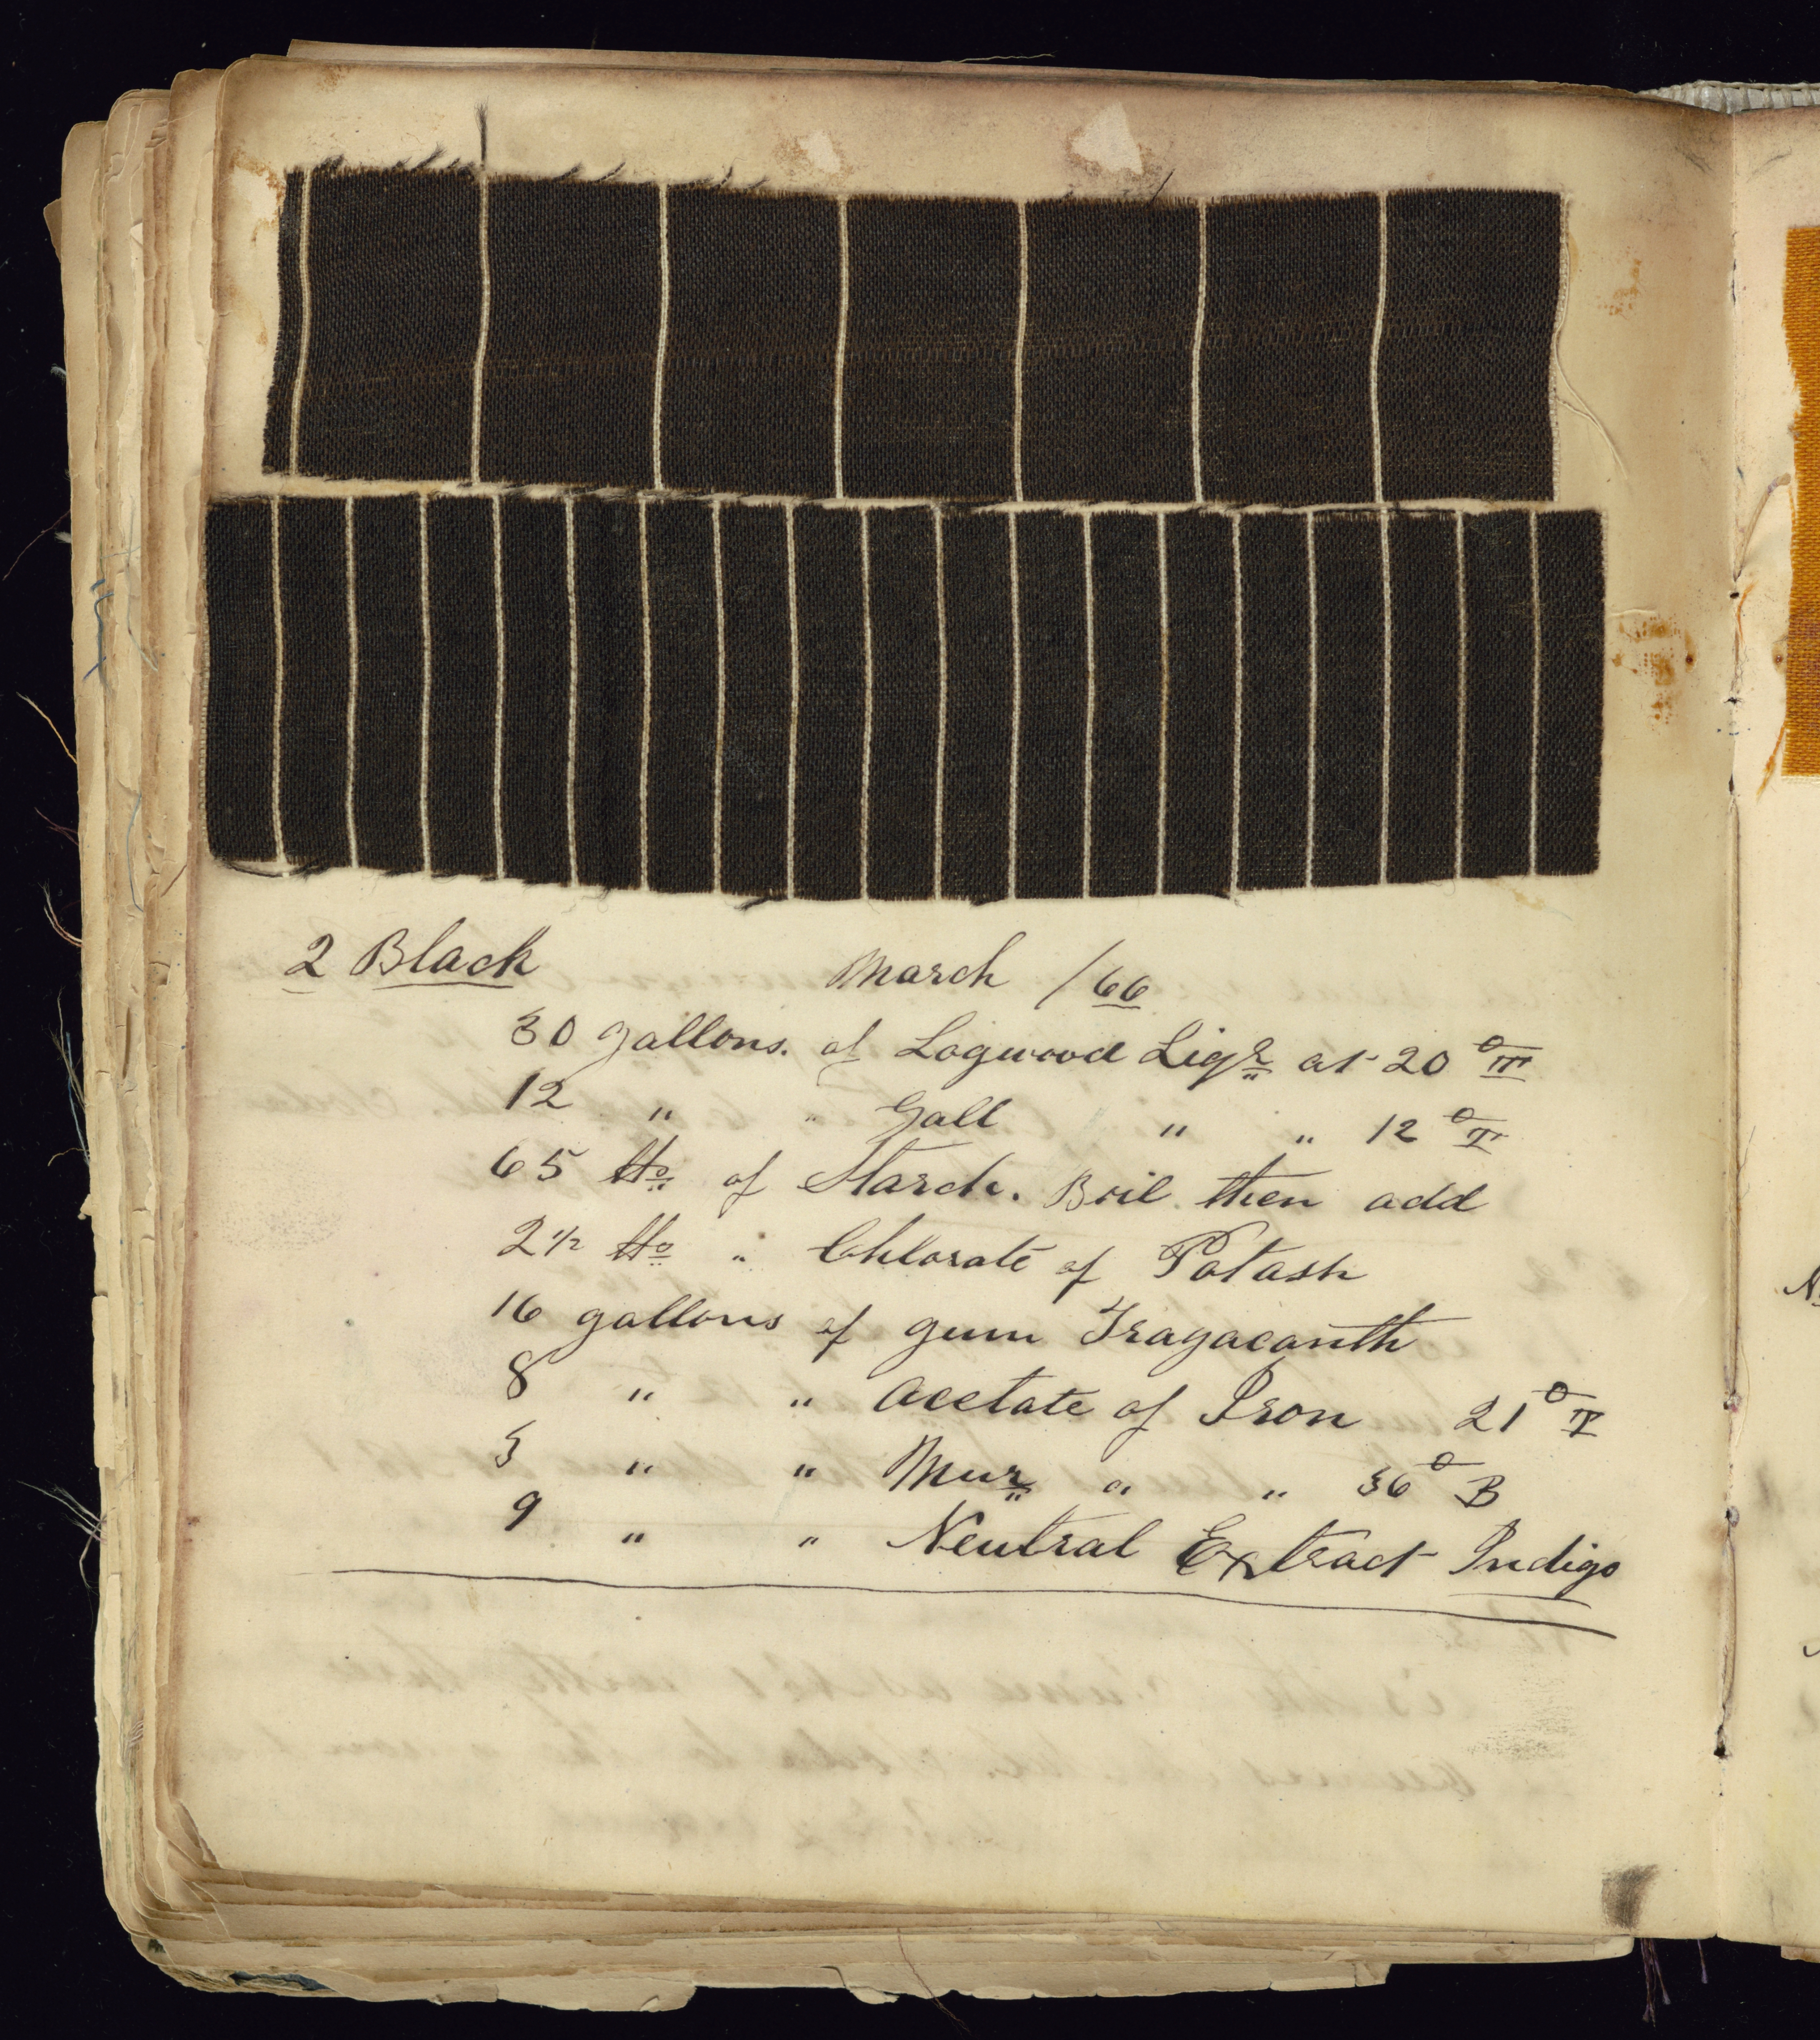 2 Black March /66
30 gallons. of Logwood Liqr at 20° T
12 " " Gall " " 12° T
65 lbs of Starch. Boil then add
2 1/2 lbs " Chlorate of Potash
16 gallons of gum Tragacanth
8 " " Acetate of Iron 21° T
3 " " Mur " " 36° B
9 " " Neutral Extract Indigo